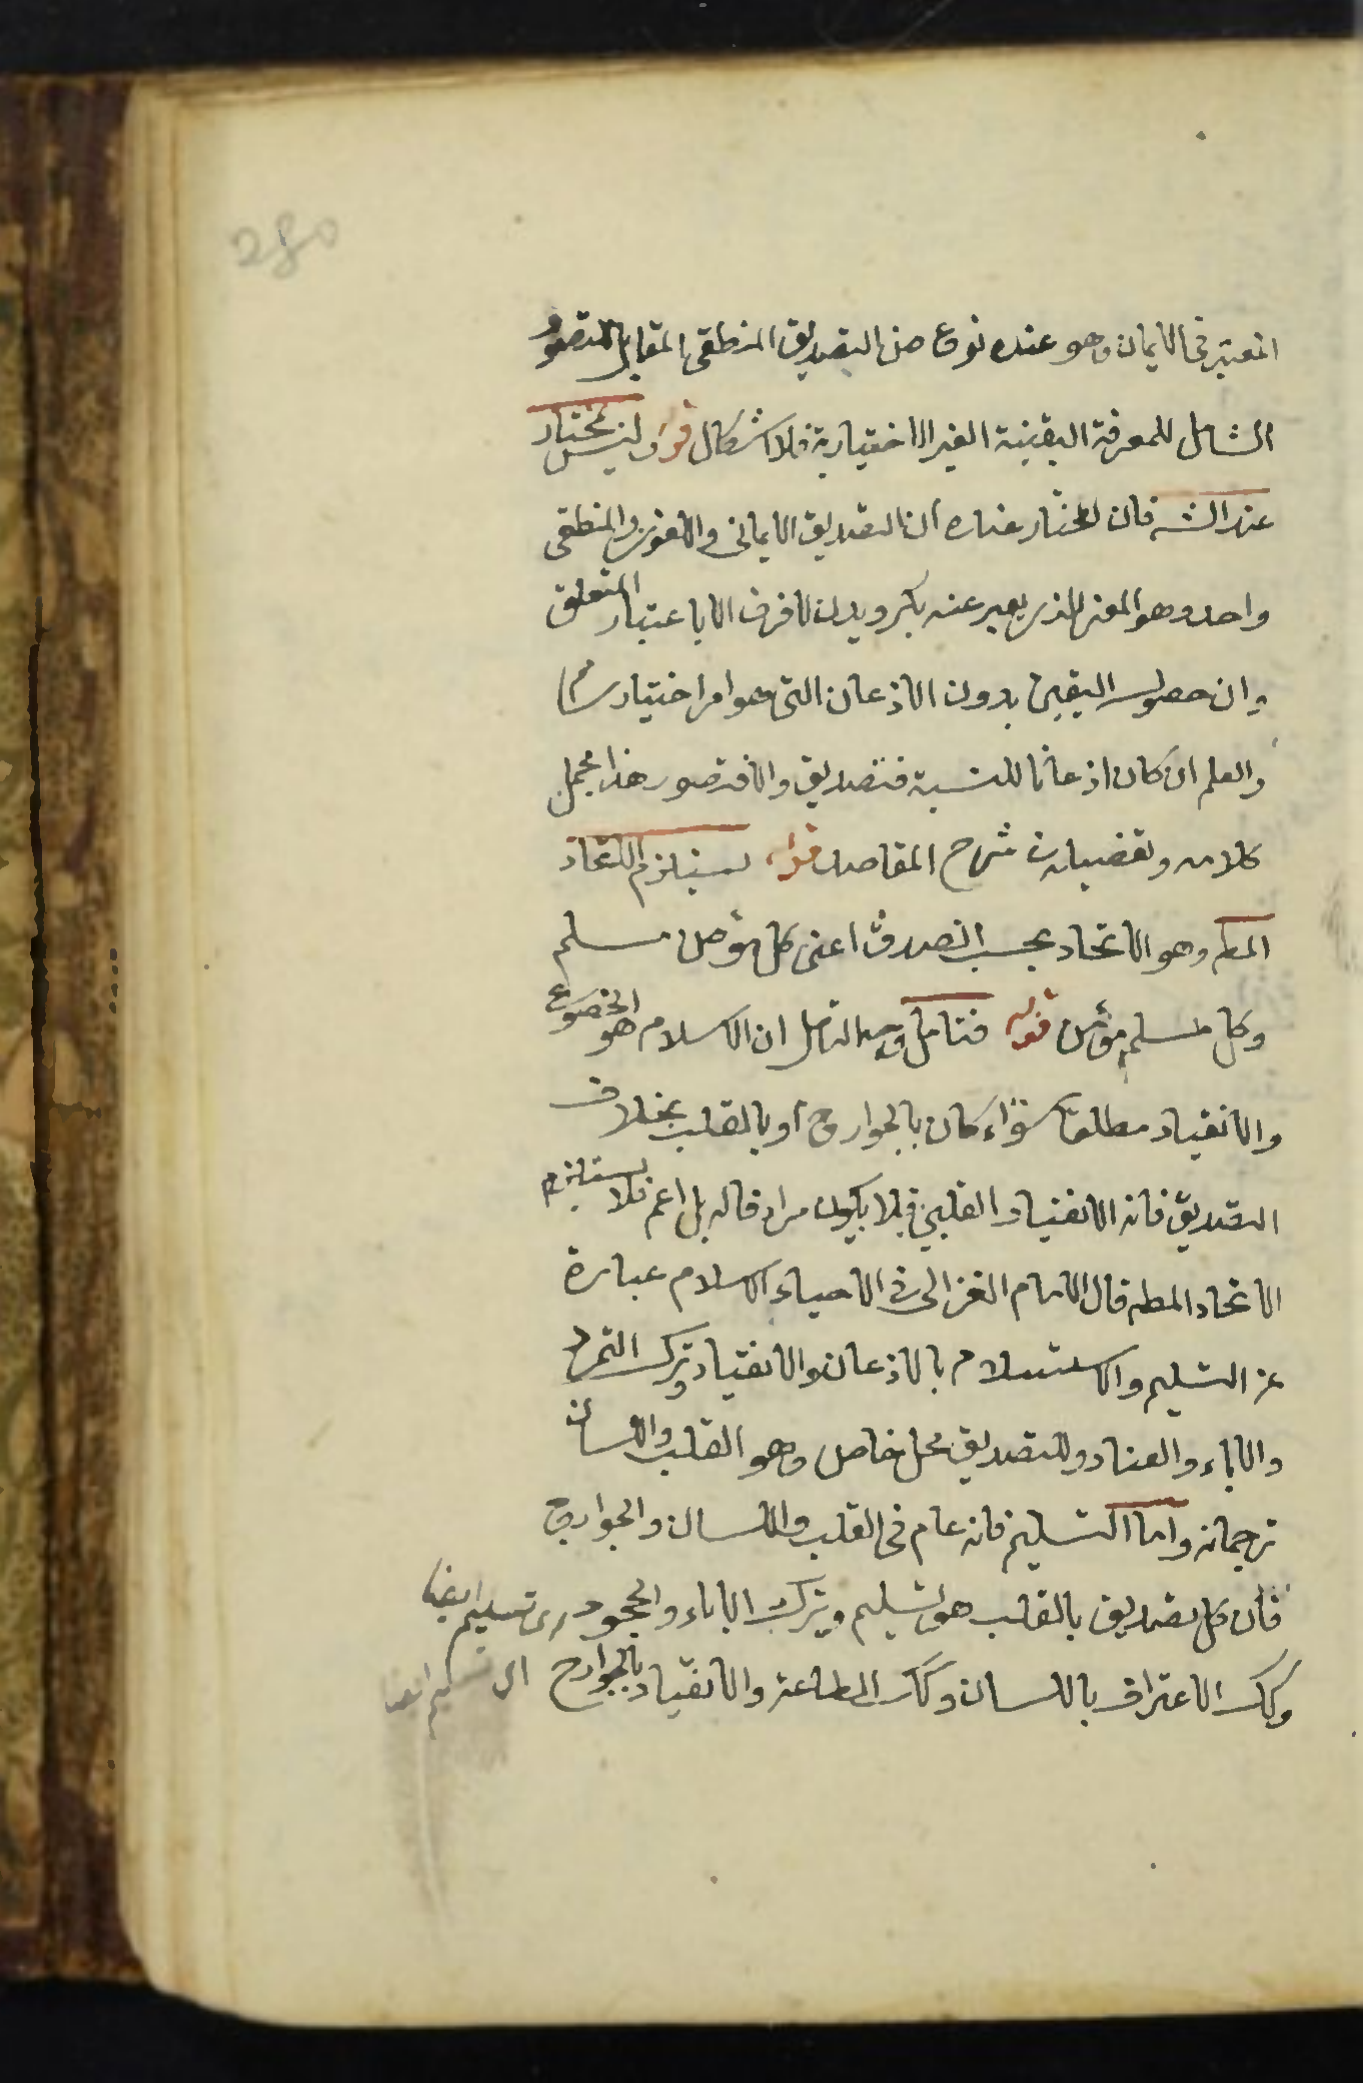 280
المعتبر فى الايمان وهو عنده نوع من التصديق المنطقى المقابل للتصور
الشامل للمعرفة اليقينية الغير الاختيارية فلا اشكال قوله ليس بمختار
عند الشه فان المختار عنده ان التصديق الايمانى واللغوى والمنطقى
واحد وهو المعنى الذى يعبر عنه بكرويدن لا فرق الا باعتبار المتعلق
وان حصول اليقين بدون الاذعان التى هو امر اختيارى
والعلم ان كان اذعانا للنسبة فتصديق والا فتصور هذا مجمل
كلامه وتفصيله فى شرح المقاصد قوله يستلزم الاتحاد
المط وهو الاتحاد بحسب الصدق اعنى كل مؤمن مسلم
وكل مسلم مؤمن قوله فتامل وجه التامل ان الاسلام هو الخضوع
والانقياد مطلقا سواء كان بالجوارح او بالقلب بخلاف
التصديق فانه الانقياد القلبى فلا يكون مرادفا له بل اعم فلا يستلزم
الاتحاد المط قال الامام الغزالى فى الاحياء الاسلام عبارة
عن التسليم والاستسلام بالاذعان والانقياد وترك التمرد
والاباء والعناد وللتصديق محل خاص وهو القلب واللسان
ترجمانه واما التسليم فانه عام فى القلب واللسان والجوارح
فان كل تصديق بالقلب هو تسليم وترك الاباء والجحود اى تسليم ايضا
وكك الاعتراف باللسان وكك الطاعة والانقياد بالجوارح اى تسليم ايضا